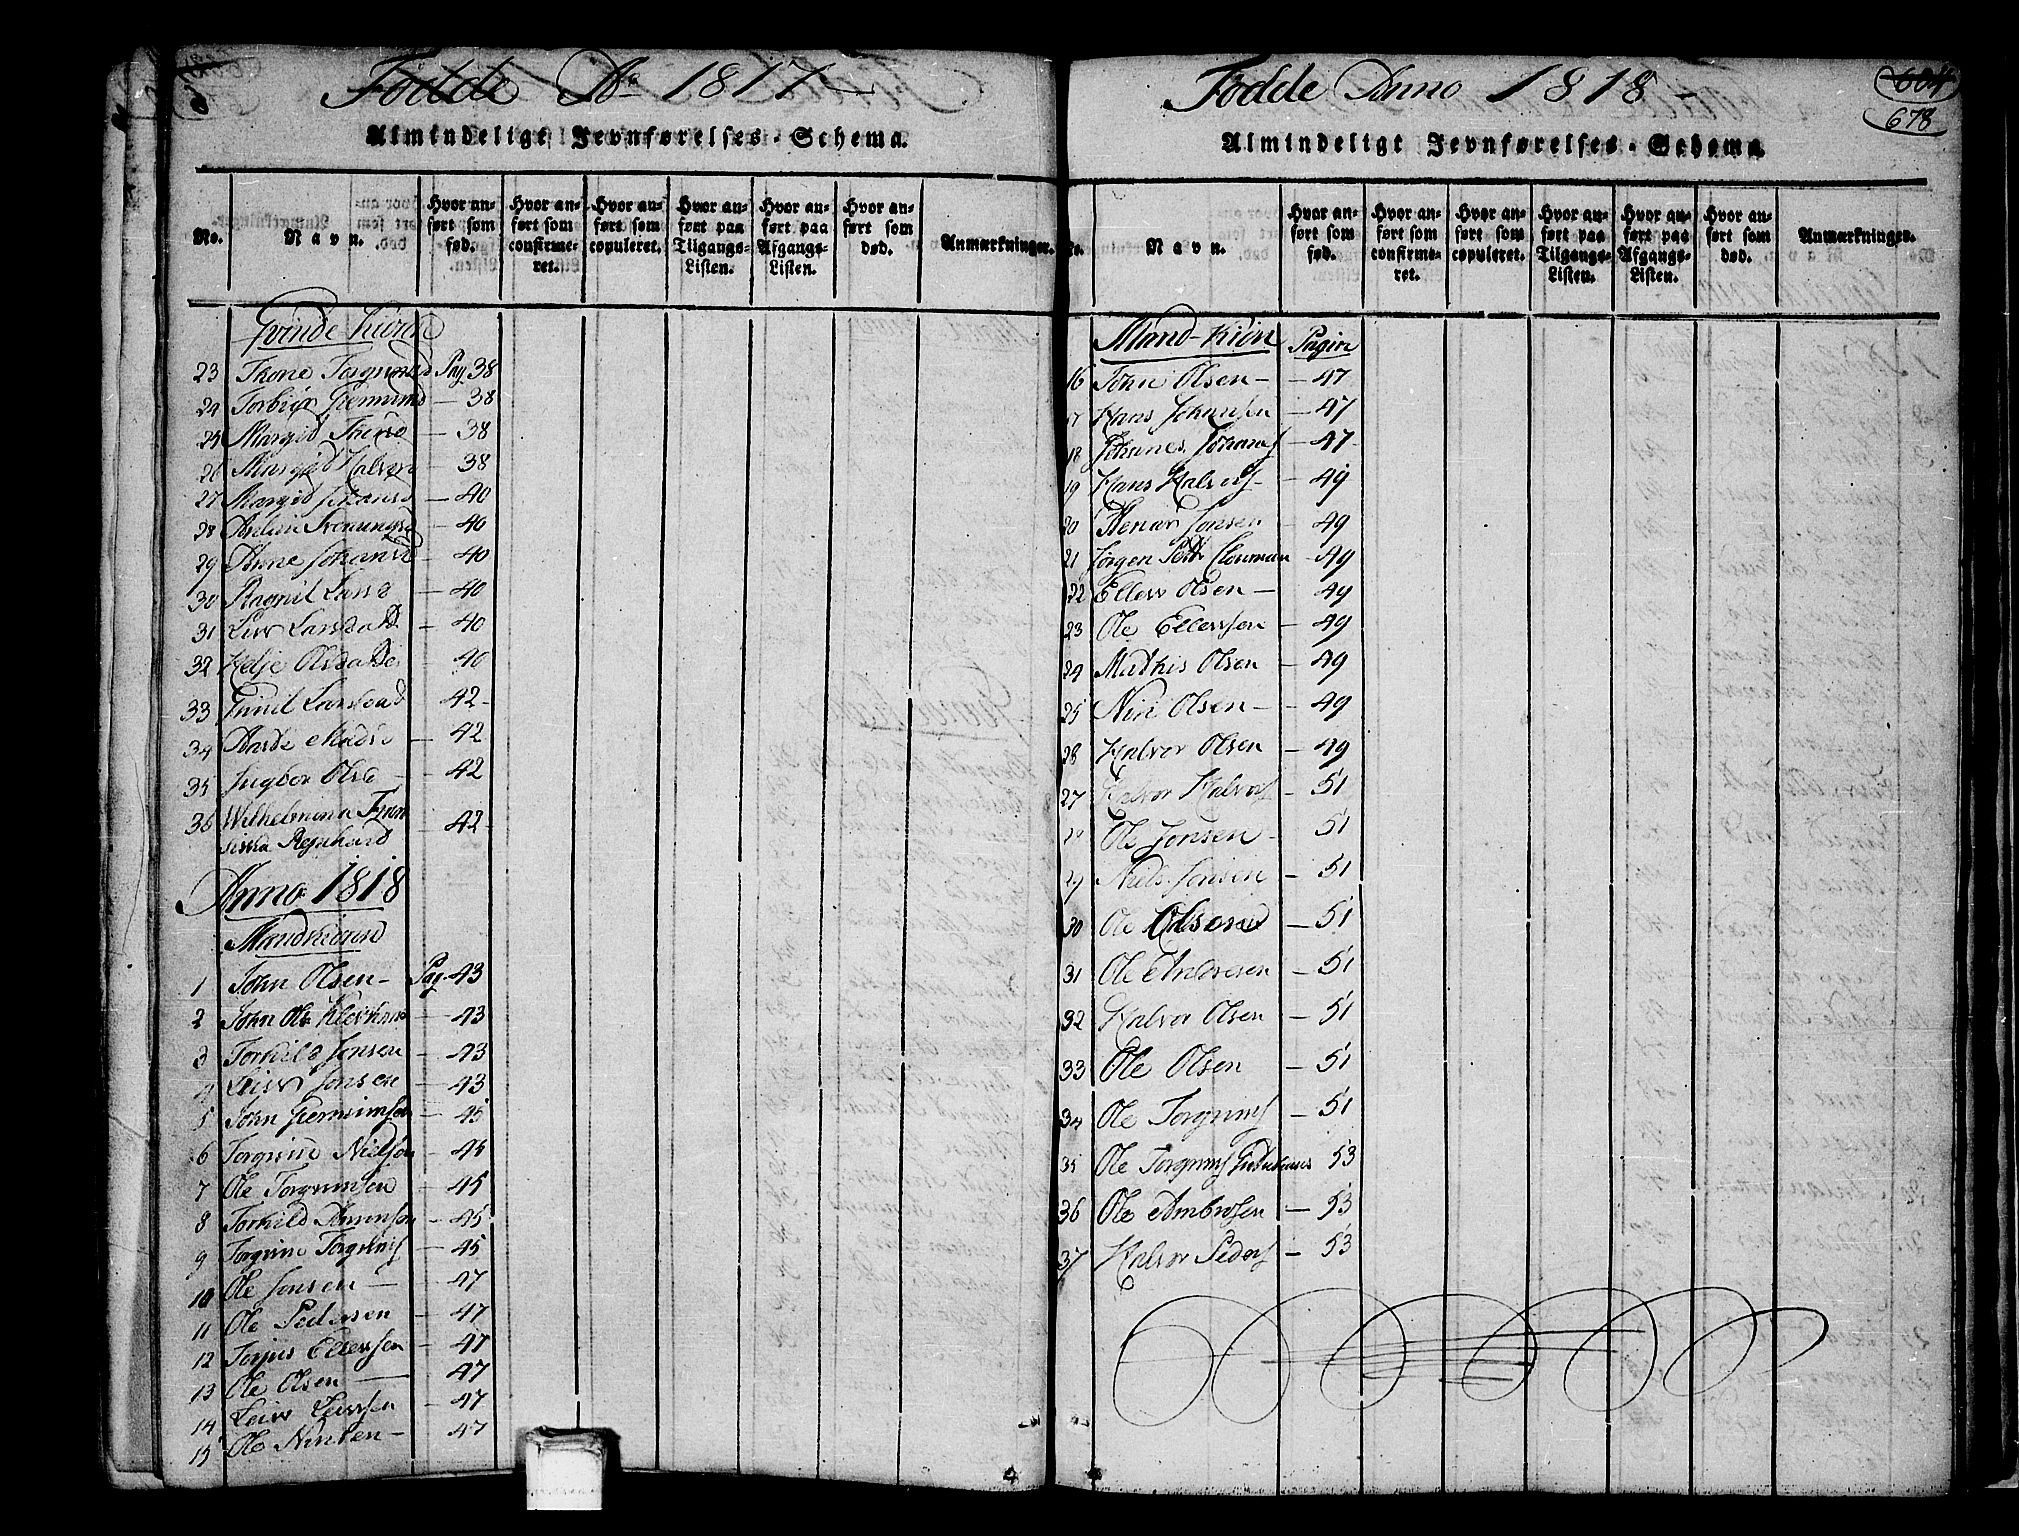 Fødde Ao 1817
Almindeligt Jevnførelses-Schema.
No.
Navn.
Hvor anført som fød.
Hvor anført som confirmeret.
Hvor anført som copuleret.
Hvor anført paa Tilgangs-Listen.
Hvor anført paa Afgangs-Listen.
Hvor anført som død.
Anmærkninger.
Qvinde Kiøn
23 Thone Torgrimsd Pag 38
24 Torbiør Giermund — 38
25 Margid Thenø — 38
26 Margid Halvor — 38
27 Margid Johansd — 40
28 — 40
29 Anne Johansd — 40
30 Ragnil Larsd — 40
31 Liv Larsdatt — 40
32 Helje Olsdatt — 40
33 Gunil Larsdad 42
34 Madsd — 42
35 Ingbor Olsd — 42
36 Wilhelmina Fran
siska Reynhard — 42
Anno 1818
Mandkiøn
1 John Olsen — Pag. 43
2 John Ols — 43
3 Torkild Jonsen — 43
4 Leiv Jonsen — 43
5 John Giermunsen — 45
6 Torgrim Nielsen — 45
7 Ole Torgrimsen — 45
8 Torkild Amunsen — 45
9 Torgrim Torgrims — 45
10 Ole Jonsen — 47
11 Ole Pedersen — 47
12 Torjus Ellevsen — 47
13 Ole Olsen — 47
14 Leiv Leivsen — 47
15 Ole — 47
Fødde Anno 1818
684
678
Almindeligt Jevnførelses-Schema
No.
Navn.
Hvor anført som fød.
Hvor anført som confirmeret.
Hvor anført som copuleret.
Hvor anført paa Tilgangs-Listen.
Hvor anført paa Afgangs-Listen.
Hvor anført som død.
Anmærkninger.
Mand-kiøn Pagin
16 John Olsen — 47
17 Hans Johansen — 47
18 Johanes Johans — 47
19 Hans Halvors — 49
20 Jonsen — 49
21 Jørgen Clouman — 49
22 Ellev Olsen — 49
23 Ole Ellevsen — 49
24 Mathis Olsen — 49
25 Niri Olsen — 49
28 Halvor Olsen — 49
27 Halvor Halvors — 51
28 Ole Jonsen — 51
29 Niels Jonsen — 51
30 Ole — 51
31 Ole Andresen — 51
32 Halvor Olsen — 51
33 Ole Olsen — 51
34 Ole Torgrims — 51
35 Ole Torgrims 53
36 Ole Ambrosen — 53
37 Halvor Peders — 53